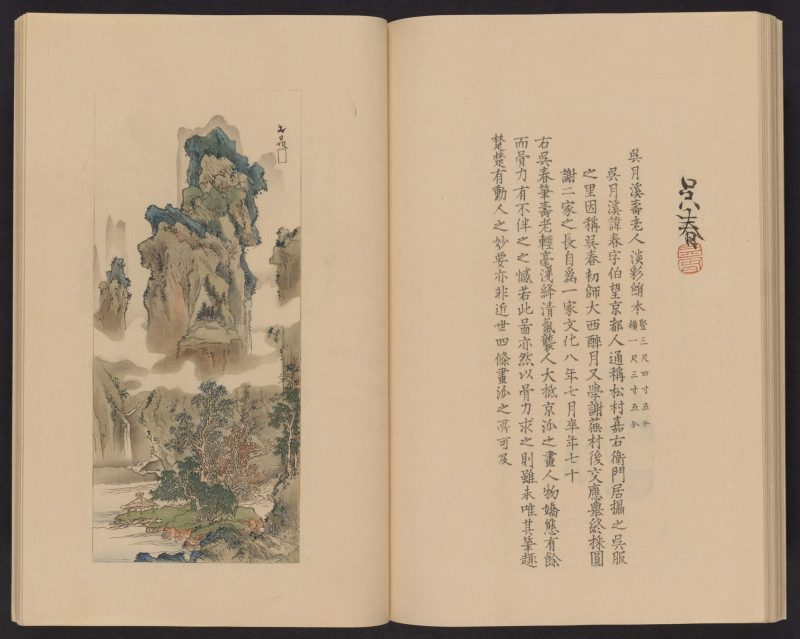 呉春
呉月溪壽老人 淡彩絹本 竪三尺四寸五分
橫一尺三寸五分
呉月溪諱春字伯望京都人通稱松村嘉右衛門居攝之呉服
之里因稱呉春初師大西醉月又學謝蕪村後交應擧終採圓
謝二家之長自爲一家文化八年七月卒年七十
右呉春筆壽老輕毫淺絳清氣襲人大抵京泒之畫人物嬌態有餘
而骨力有不伴之之憾若此啚亦然以骨力求之則雖未唯其筆趣
楚楚有動人之妙要亦非近世四條畫泒之所可及